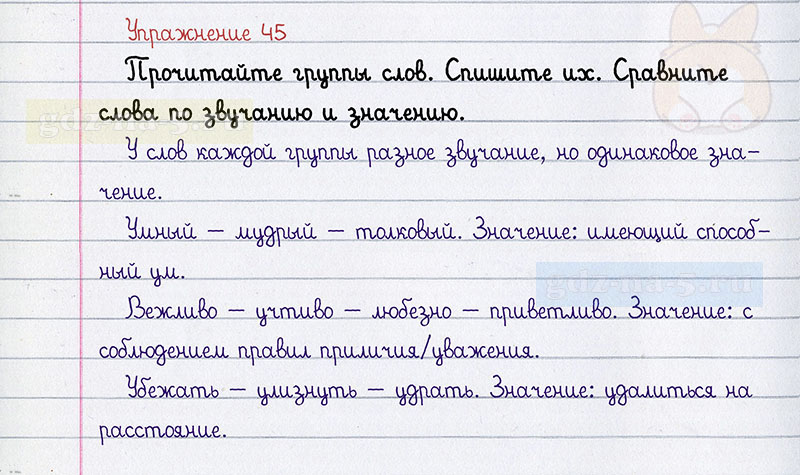 Упражнение 45
Прочитайте группы слов. Спишите их. Сравните
слова по звучанию и значению.
У слов каждой группы разное звучание, но одинаковое зна-
чение.
Умный – мудрый – толковый. Значение: имеющий способ-
ный ум.
gdz-na-5.ru
Вежливо – учтиво – любезно – приветливо. Значение: с
соблюдением правил приличия/уважения.
Убежать – улизнуть – удрать. Значение: удалиться на
расстояние.